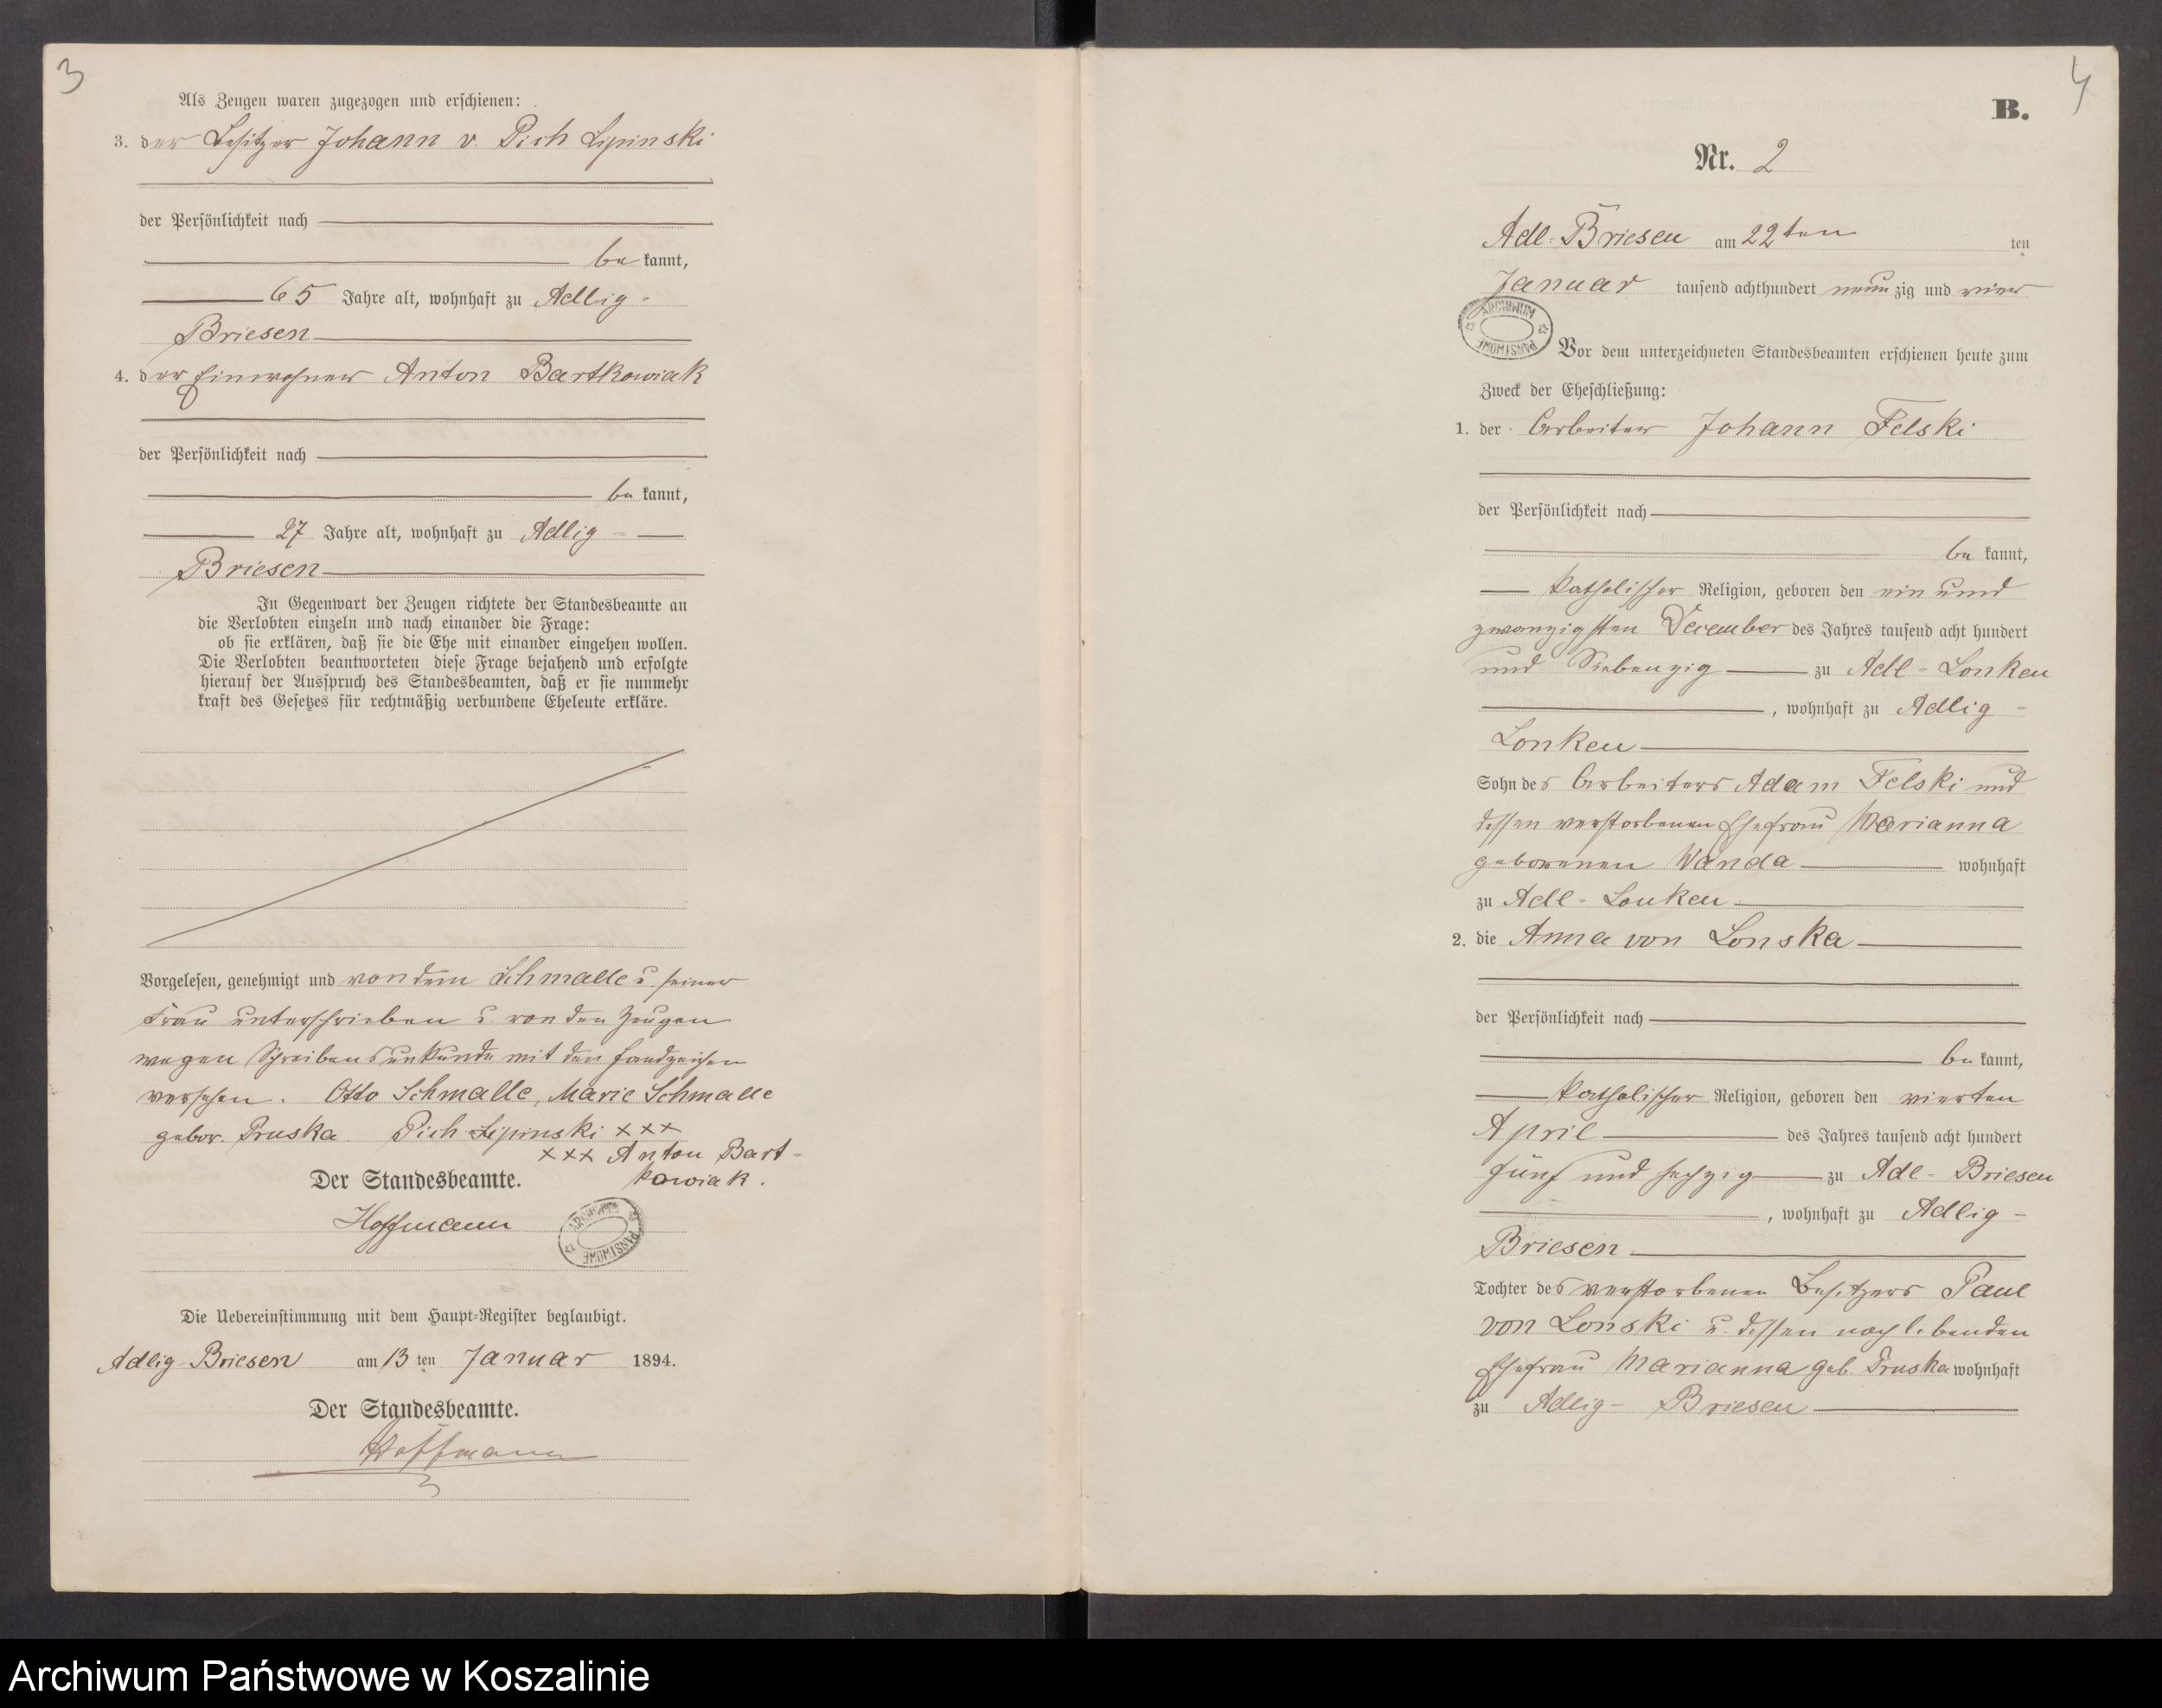 3
Als Zeugen waren zugezogen und erschienen:
3. der Besitzer Johann v. Pich Lipinski
der Persönlichkeit nach
be kannt,
65 Jahre alt, wohnhaft zu Adlig-
Briesen
4. der Einwohner Anton Bartkowiak
der Persönlichkeit nach
be kannt,
27 Jahre alt, wohnhaft zu Adlig-
Briesen
In Gegenwart der Zeugen richtete der Standesbeamte an
die Verlobten einzeln und nach einander die Frage:
ob sie erklären, daß sie die Ehe mit einander eingehen wollen.
Die Verlobten beantworteten diese Frage bejahend und erfolgte
hierauf der Ausspruch des Standesbeamten, daß er sie nunmehr
kraft des Gesetzes für rechtmäßig verbundene Eheleute erkläre.
Vorgelesen, genehmigt und von dem Schmalle u. seiner
Frau unterschrieben u. von den Zeugen
wegen Schreibensunkunde mit den Handzeichen
versehen. Otto Schmalle, Marie Schmalle
gebor. Pruska Pich Lipinski xxx
xxx Anton Bart-
kowiak.
Der Standesbeamte.
Hoffmann
ARCHIWUM PAŃSTWOWE
Die Uebereinstimmung mit dem Haupt-Register beglaubigt.
Adlig Briesen am 13 ten Januar 1894.
Der Standesbeamte.
Hoffmann
4
B.
Nr. 2
Adl-Briesen am 22ten ten
Januar tausend achthundert neun zig und vier
ARCHIWUM PAŃSTWOWE
Vor dem unterzeichneten Standesbeamten erschienen heute zum
Zweck der Eheschließung:
1. der Arbeiter Johann Felski
der Persönlichkeit nach
be kannt,
katholischer Religion, geboren den ein und
zwanzigsten December des Jahres tausend acht hundert
und Siebenzig zu Adl-Lonken
, wohnhaft zu Adlig-
Lonken
Sohn des Arbeiters Adam Felski und
dessen verstorbenen Ehefrau Marianna
geborenen Wanda wohnhaft
zu Adl-Lonken
2. die Anna von Lonska
der Persönlichkeit nach
be kannt,
katholischer Religion, geboren den vierten
April des Jahres tausend acht hundert
fünf und sechzig zu Adl-Briesen
, wohnhaft zu Adlig-
Briesen
Tochter des verstorbenen Besitzers Paul
von Lonski u. dessen noch lebenden
Ehefrau Marianna geb. Pruska wohnhaft
zu Adlig-Briesen
Archiwum Państwowe w Koszalinie